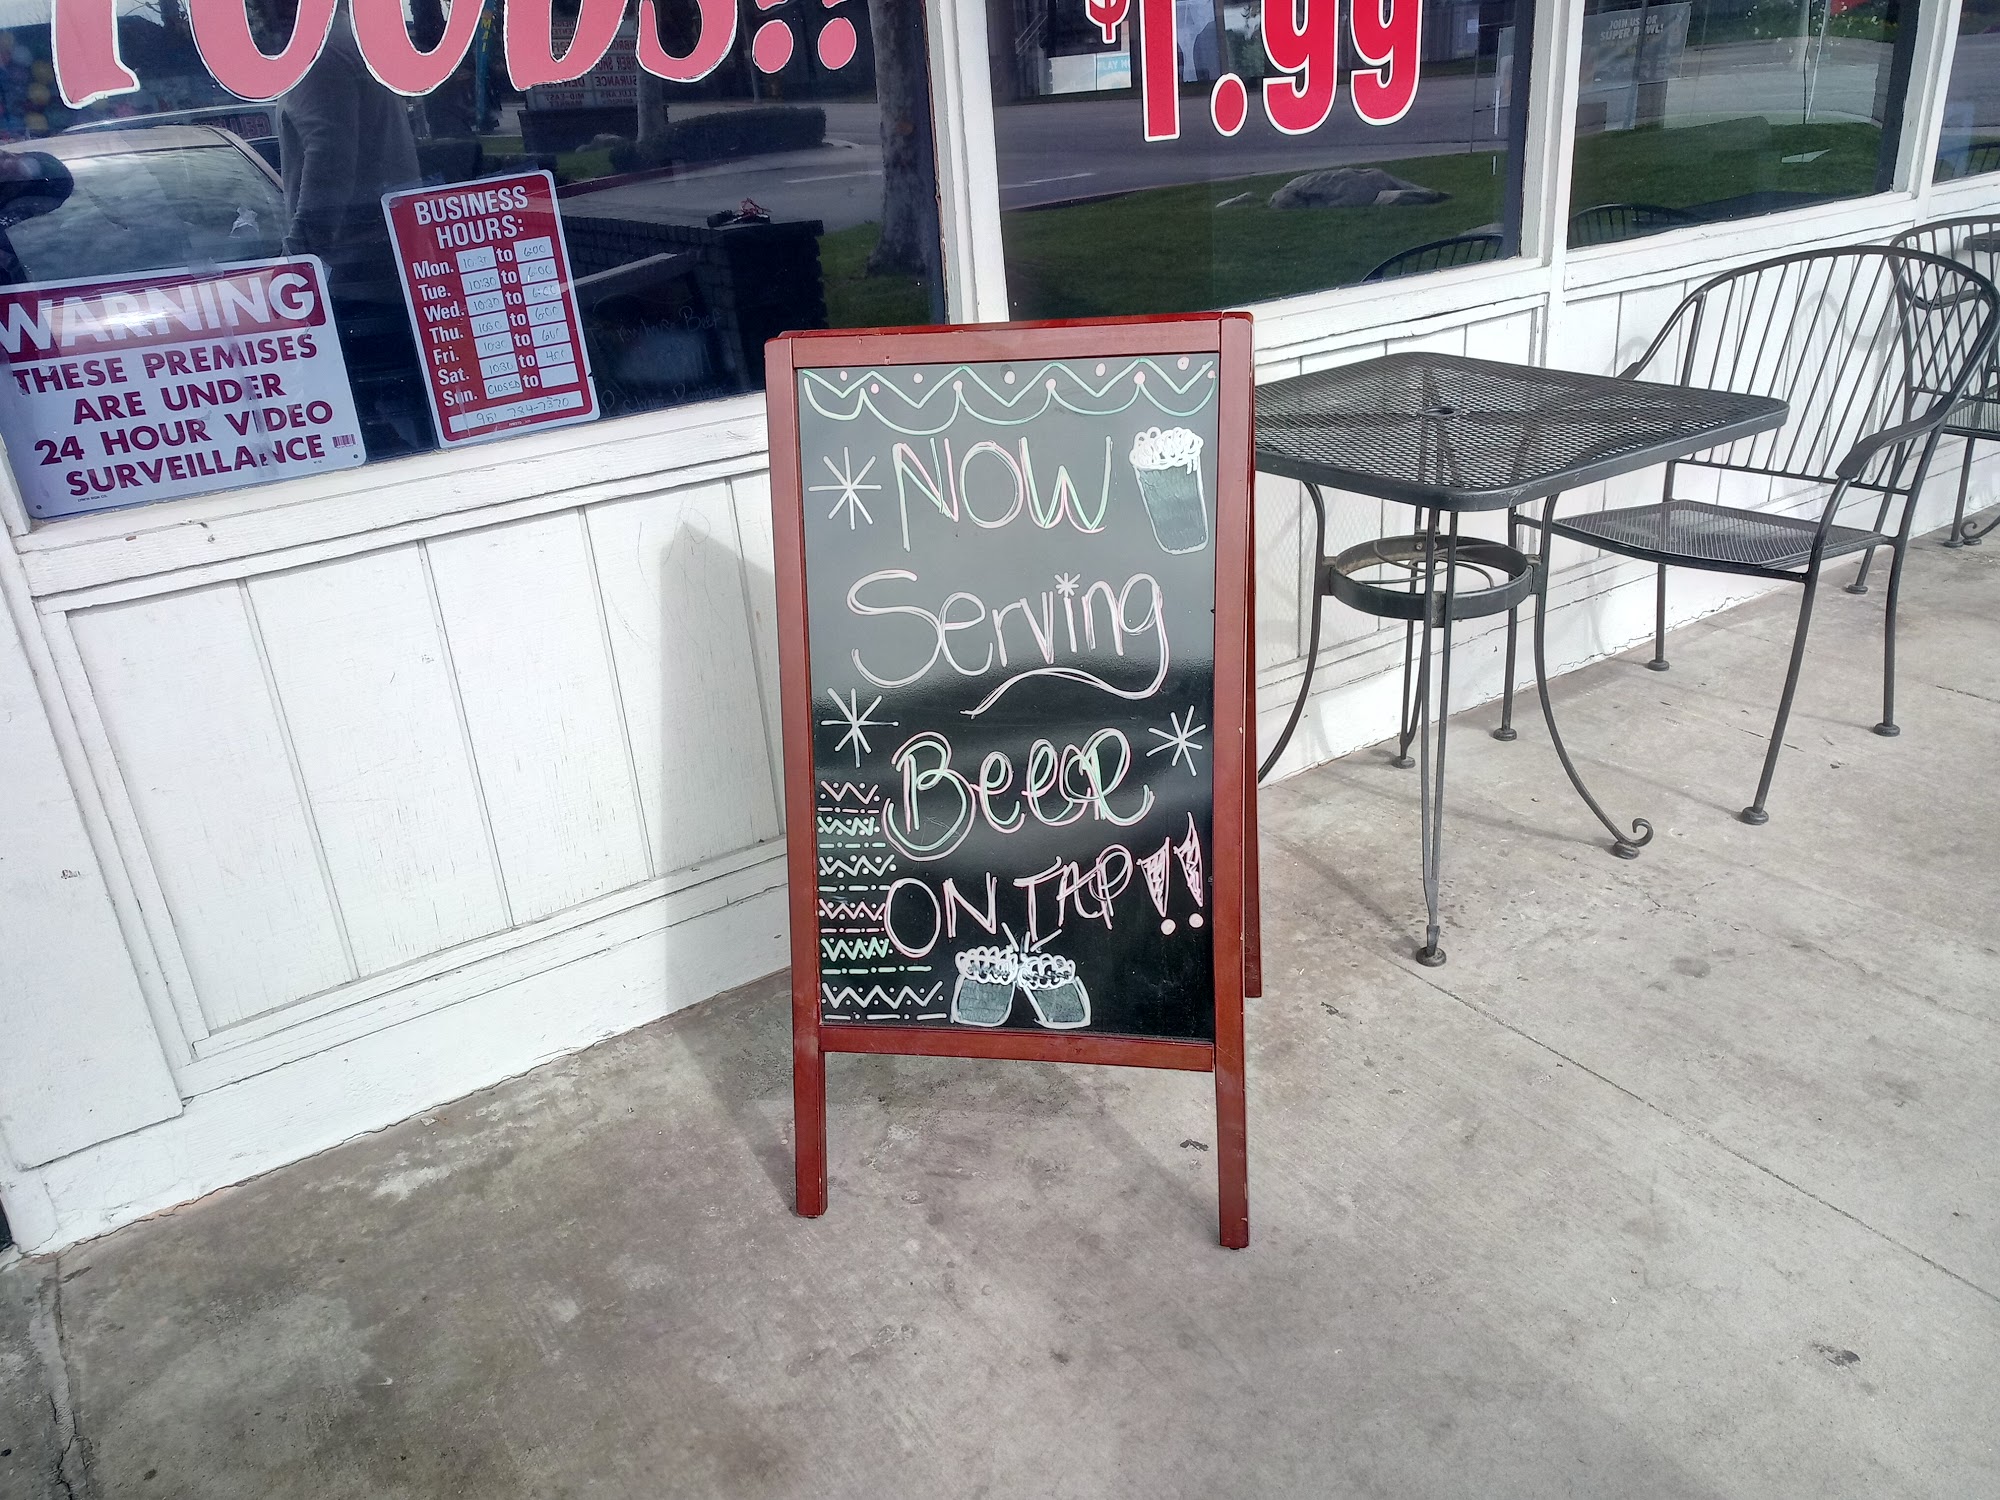 FOODS!!
$1.99
JOIN US FOR
SUPER BOWL!
BUSINESS
HOURS:
Mon. 10:30 to 6:00
Tue. 10:30 to 6:00
Wed. 10:30 to 6:00
Thu. 10:30 to 6:00
Fri. 10:30 to 6:00
Sat. 10:30 to 4:00
Sun. CLOSED to
951 784-7370
WARNING
THESE PREMISES
ARE UNDER
24 HOUR VIDEO
SURVEILLANCE
NOW
Serving
Beer
ON TAP!!